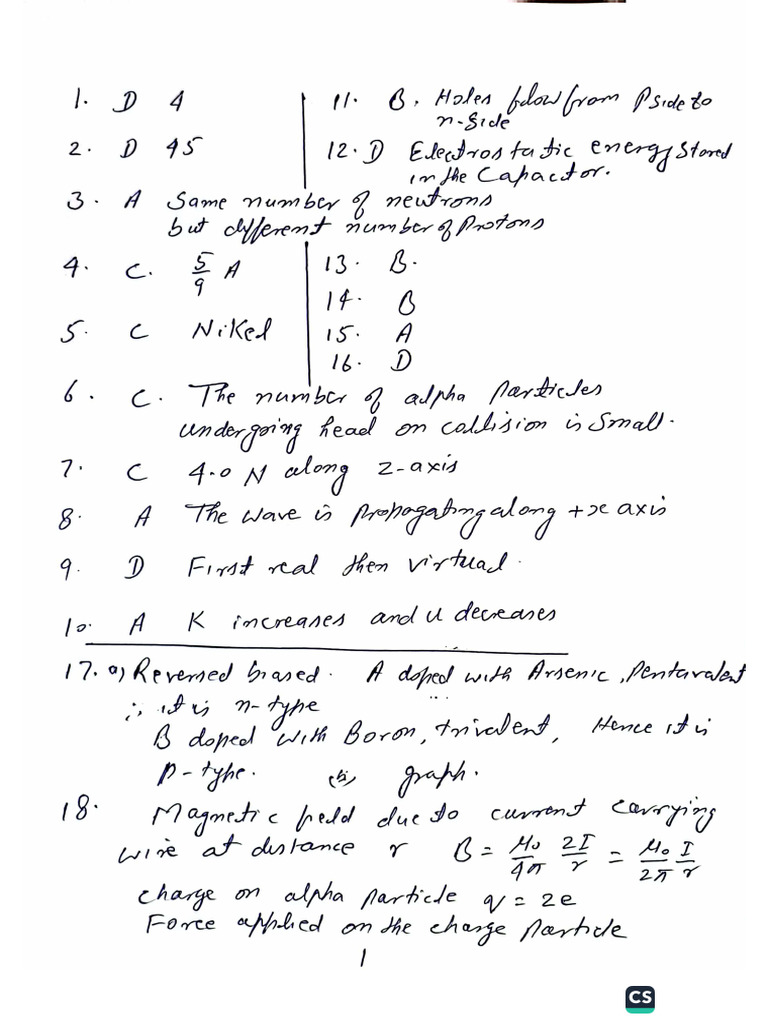 1. D 4
2. D 45
3. A Same number of neutrons
but different number of Protons
4. C. 5/9 A
5. C Nikel
11. B. Holes flow from P side to
n-side
12. D Electrostatic energy stored
in the Capactor.
13. B.
14. B
15. A
16. D
6. C. The number of alpha Particles
undergoing head on collision is small.
7. C 4.0 N along z-axis
8. A The wave is propogating along +x axis
9. D First real then virtual.
10. A K increases and u decreases
17. a) Reversed biased. A doped with Arsenic, pentavalent
∴ it is n-type
B doped with Boron, trivalent, Hence it is
p-type. (b) graph.
18. Magnetic field due to current carrying
wire at distance r B = μ₀/4π 2I/r = μ₀/2π I/r
charge on alpha particle q = 2e
Force applied on the charge particle
1
CS